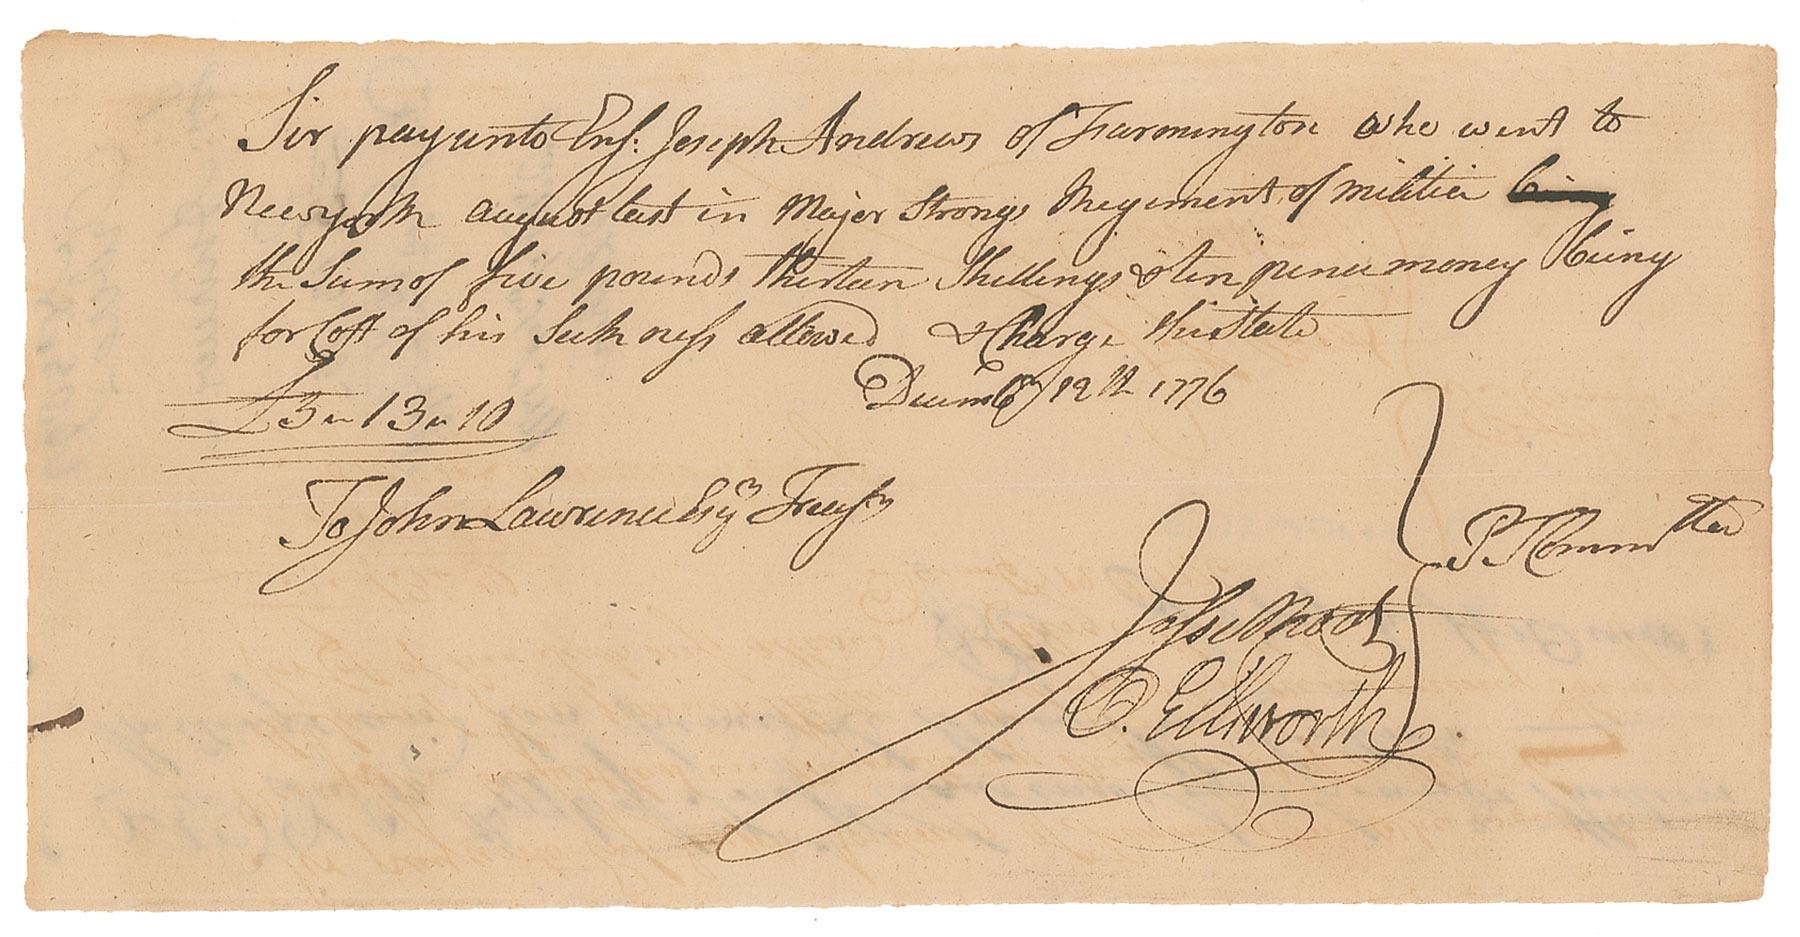 Sir pay unto Ens: Joseph Andrews of Farmington who went to
Newyork august last in Major Strongs Regement of militia being
the Sum of five pounds thirteen Shillings & ten pence money being
for Cost of his Sickness allowed & Charge this State
Decembr 12th 1776
£5 " 13 " 10
To John Lawrence Esqr Treasr
Jesse Root
O. Ellsworth
P. Committee